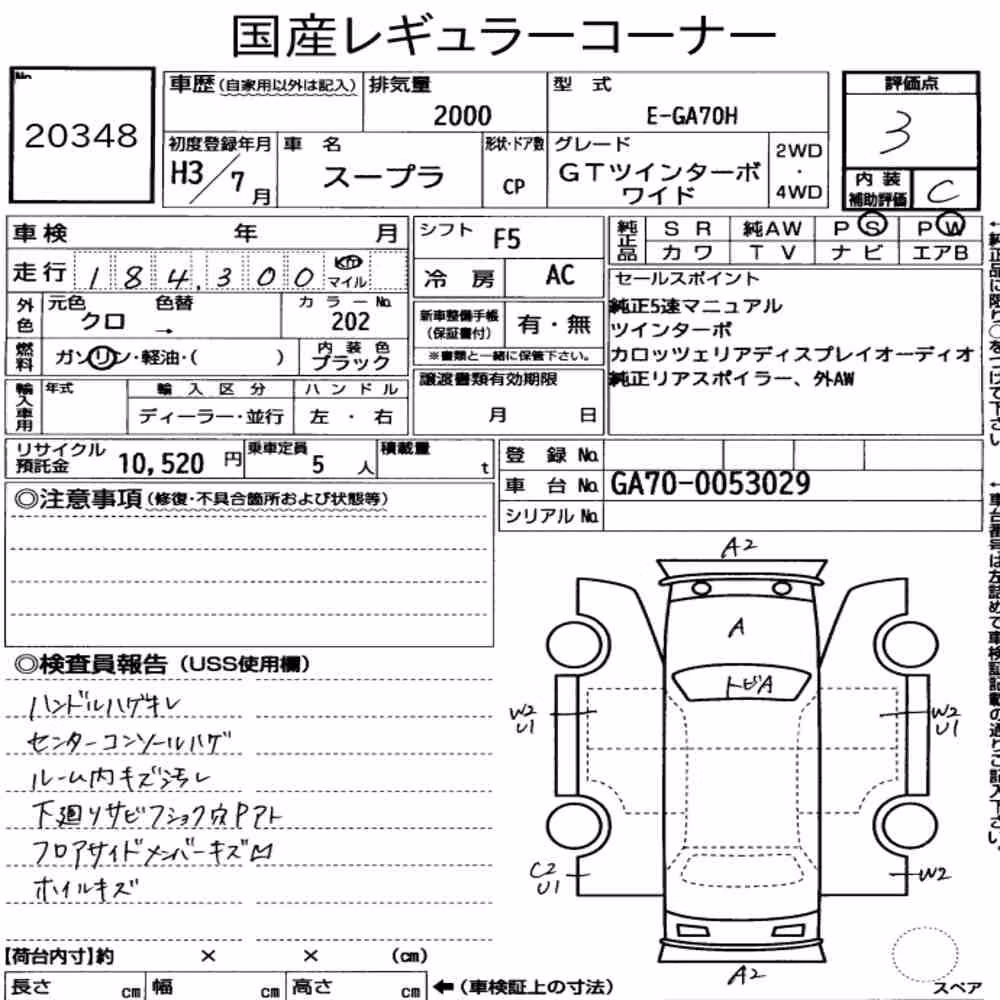 国産レギュラーコーナー
No.
20348
車歴(自家用以外は記入)
排気量
2000
型 式
E-GA70H
評価点
3
初度登録年月
H3/7月
車 名
スープラ
形状・ドア数
CP
グレード
GTツインターボ
ワイド
2WD
・
4WD
内装
補助評価
C
車検 年 月
シフト F5
純正品
SR 純AW PS PW
カワ TV ナビ エアB
走行 184,300 Km マイル
冷房 AC
セールスポイント
純正5速マニュアル
ツインターボ
カロッツェリアディスプレイオーディオ
純正リアスポイラー、外AW
外色
元色 色替
クロ →
カラーNo.
202
新車整備手帳
(保証書付)
有・無
※書類と一緒に保管下さい。
燃料
ガソリン・軽油・( )
内装色
ブラック
譲渡書類有効期限
月 日
輸入車用
年式
輸入区分
ディーラー・並行
ハンドル
左・右
リサイクル
預託金
10,520 円
乗車定員
5 人
積載量
t
登録No.
車台No. GA70-0053029
シリアルNo.
◎注意事項(修復・不具合箇所および状態等)
◎検査員報告(USS使用欄)
ハンドルハゲキレ
センターコンソールハゲ
ルーム内キズ汚レ
下廻リサビフショク穴Pアト
フロアサイドメンバーキズ凹
ホイルキズ
A2
A
トビA
W2
U1
W2
U1
C2
U1
W2
A2
スペア
【荷台内寸】約 × × (cm)
長さ cm 幅 cm 高さ cm
←(車検証上の寸法)
←純正品に限り○をつけて下さい
←車台番号は左詰めで車検証記載の通りご記入下さい。